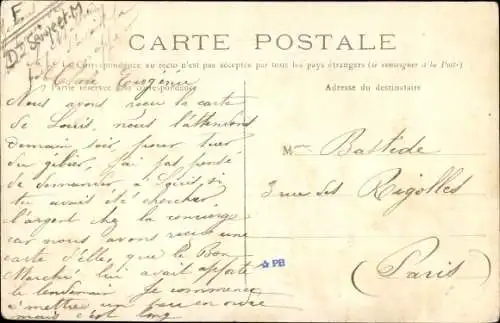 F.
Dt Seine-et-M
CARTE POSTALE
La Correspondance au recto n'est pas acceptée par tous les pays étrangers (se renseigner à la Poste)
Partie réservée à la correspondance
Adresse du destinataire
Chère Eugénie
Nous avons reçu la carte
de Louis, nous l'attendons
demain soir, pour tuer
du gibier, j'ai pas pensé
de demander à Louis si
tu avais été chercher
l'argent chez la concierge
car nous avons reçu une
carte d'elle, que le Bon
Marché lui avait apporté
le lendemain Je commence
à mettre un peu en ordre
mais c'est long
Mme Bastide
3 rue des Rigolles
(Paris)
PB